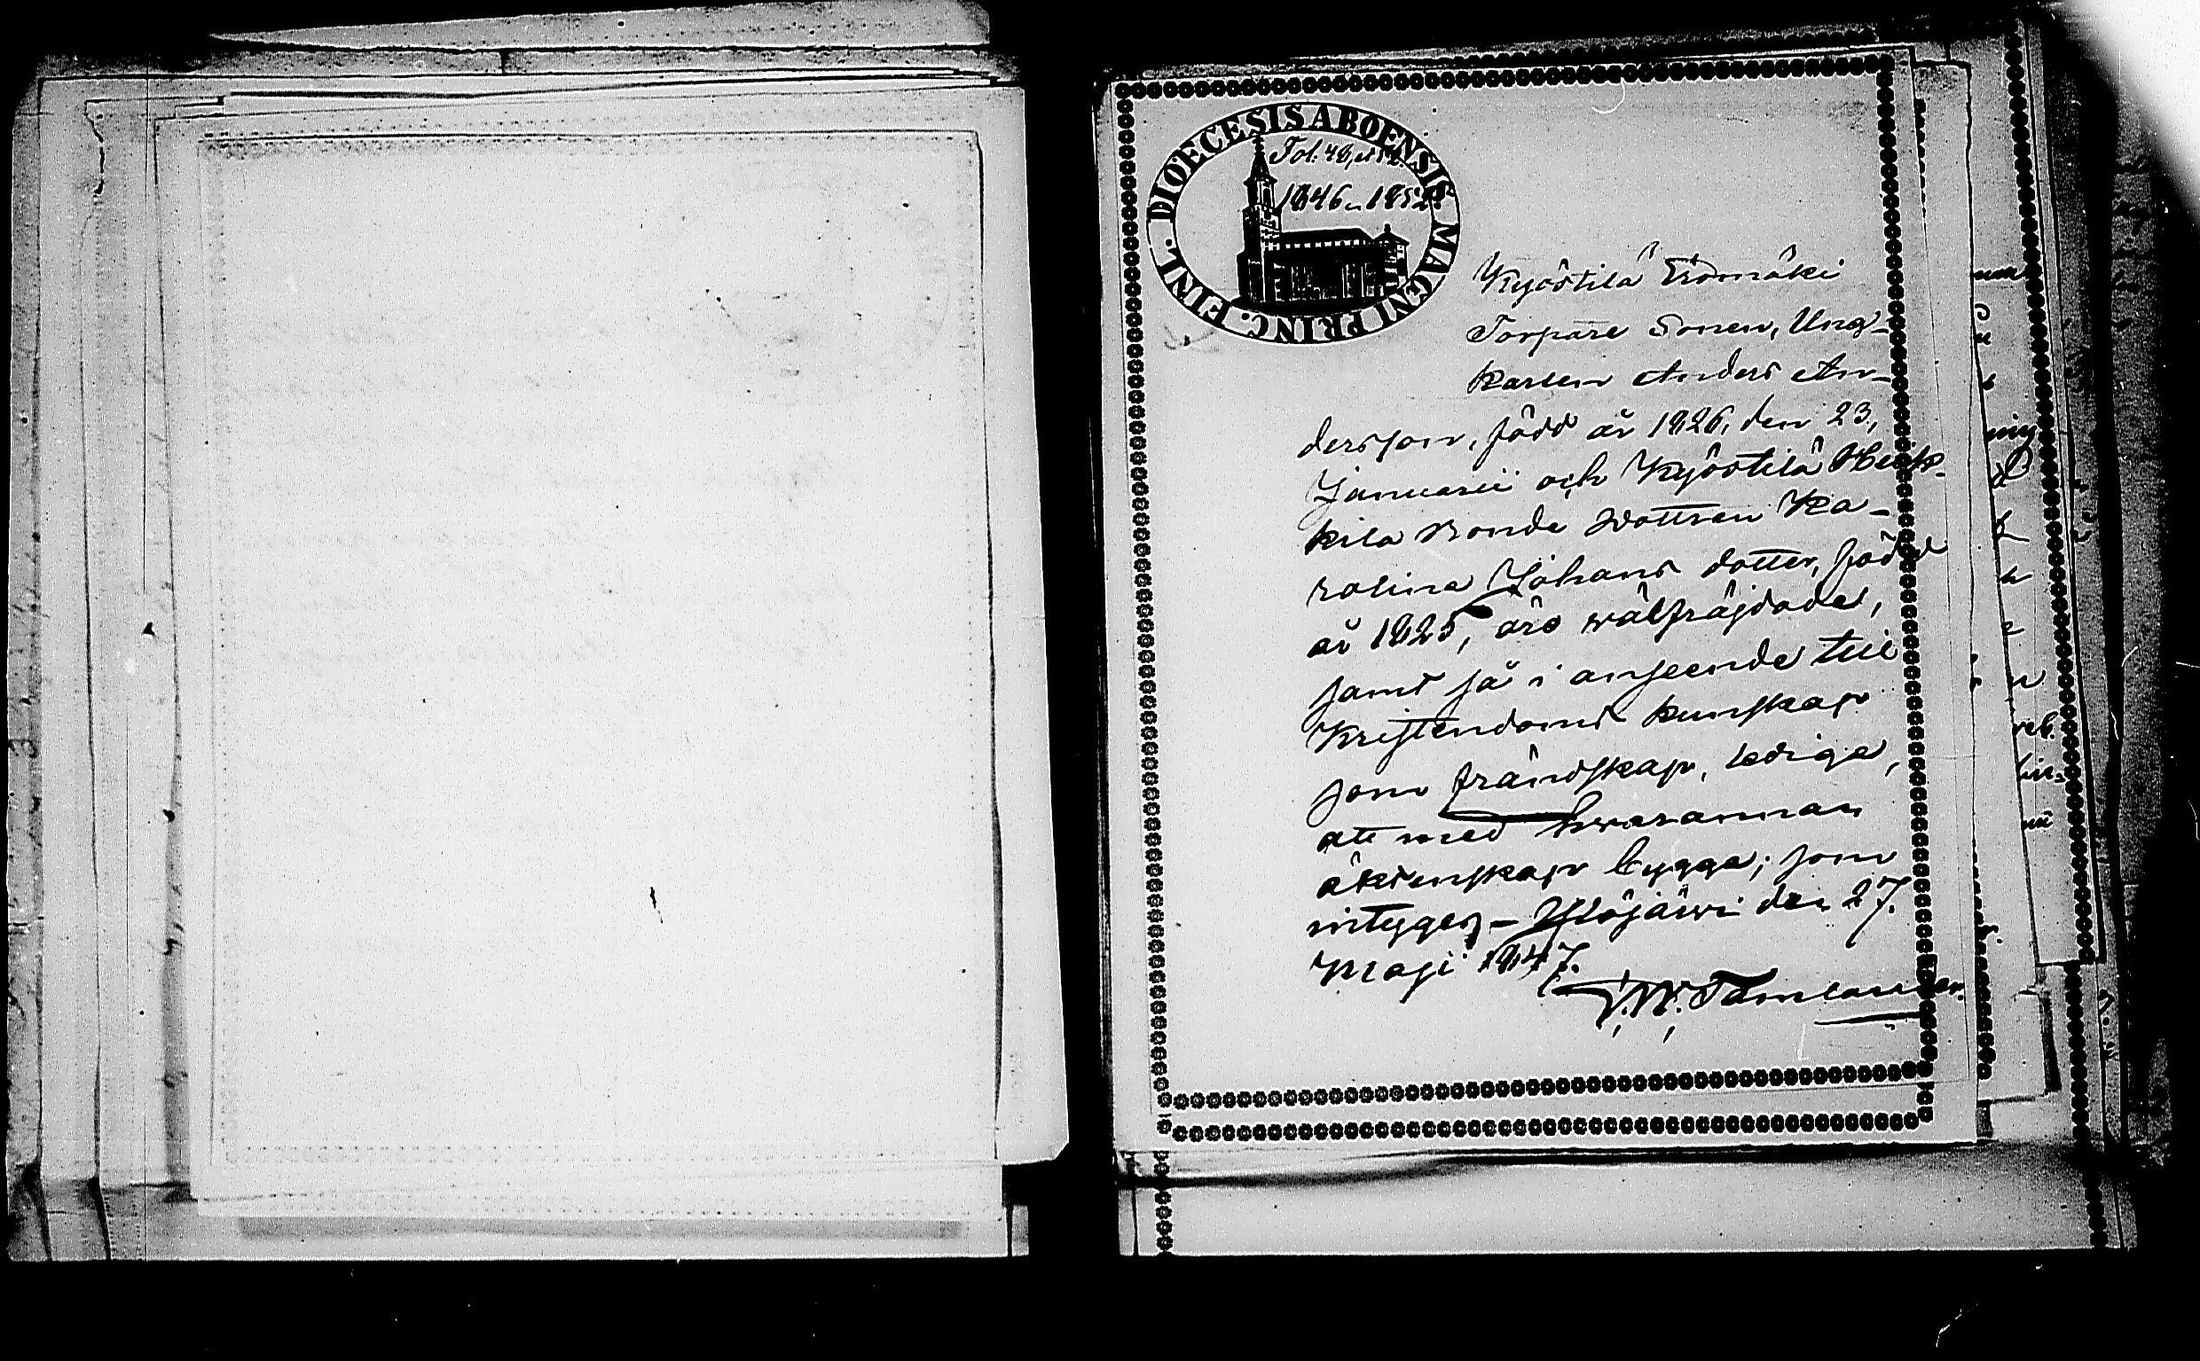 DIOECESIS ABOENSIS MAGNI PRINC. FINL.
Fol. 48,
1846 1852
Kyöstilä
Torpare Sonen, Ung-
karlen Anders An-
dersson, född år 1826, den 23,
Januarii och Kyöstilä Heik-
kilä Bonde Dottren Ka-
rolina Johans dotter, född
år 1825, äro wälfräjdade,
samt så i anseende till
Kristendoms kunskap
som frändskap, lediga,
att med hwarannan
äktenskap bygga; som
intygges – Ylöjärwi den 27.
Maji 1847.